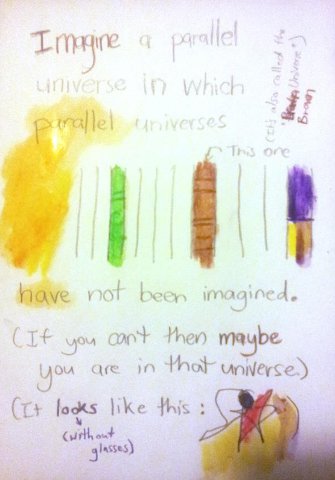 Imagine a parallel
universe in which
parallel universes
(It's also called the
Universe")
Brown
This one
have not been imagined.
(If you can't then maybe
you are in that universe.)
(It looks like this:
(without
glasses)